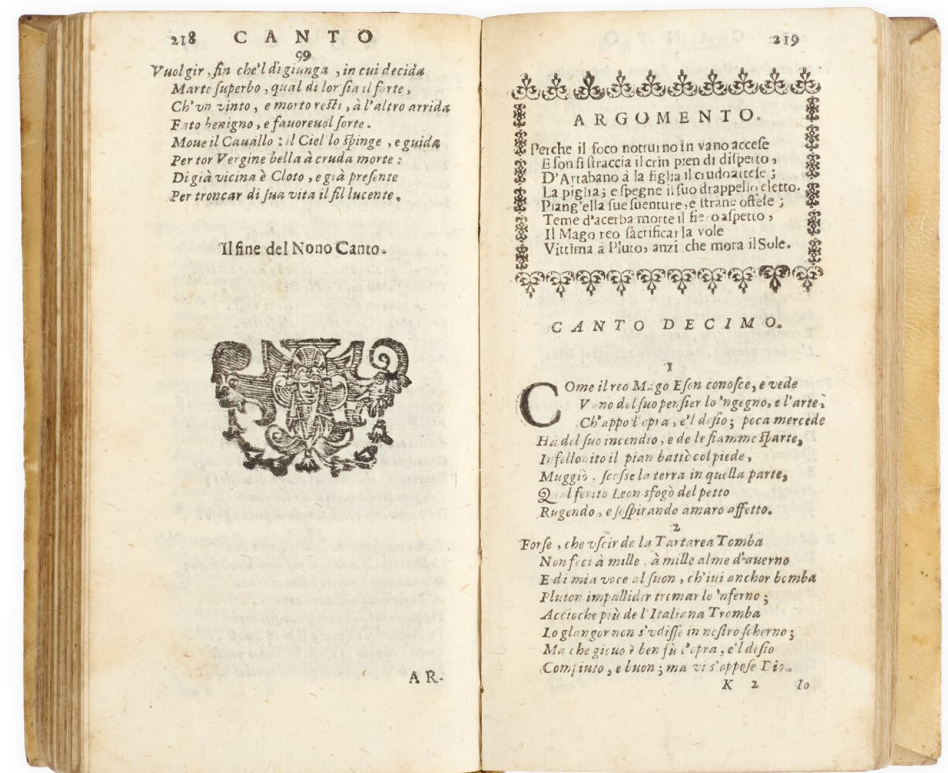 218 CANTO
99
Vuol gir, fin che'l dì giunga, in cui decida
Marte superbo, qual di lor sia il forte,
Ch'vn vinto, e morto resti, à l'altro arrida
Fato benigno, e fauoreuol sorte.
Moue il Cauallo: il Ciel lo spinge, e guida
Per tor Vergine bella à cruda morte:
Di già vicina è Cloto, e già presente
Per troncar di sua vita il fil lucente.
Il fine del Nono Canto.
AR-
219
ARGOMENTO.
Perche il foco notturno in vano accese
Eson si straccia il crin pien di dispetto,
D'Artabano à la figlia il crudo attese;
La piglia; e spegne il suo drappello eletto.
Piang'ella sue suenture, e strane offese;
Teme d'acerba morte il fiero aspetto,
Il Mago reo sacrificar la vole
Vittima à Pluto, anzi che mora il Sole.
CANTO DECIMO.
1
Come il reo Mago Eson conosce, e vede
Vano del suo pensier lo 'ngegno, e l'arte;
Ch'appo l'opra, e'l desio; poca mercede
Hà del suo incendio, e de le fiamme sparte,
Infellonito il pian battè col piede,
Muggiò, scosse la terra in quella parte,
Qual ferito Leon sfogò del petto
Rugendo, e sospirando amaro affetto.
2
Forse, che vscir de la Tartarea Tomba
Non feci à mille, à mille alme d'auerno
E di mia voce al suon, ch'iui anchor bomba
Pluton impallidir tremar lo 'nferno;
Accioche più de l'Italiana Tromba
Lo glangor non s'vdisse in nostro scherno;
Ma che giouò è ben fù l'opra, e'l desio
Compiuto, e buon; ma vi s'oppose Dio.
K 2 Io